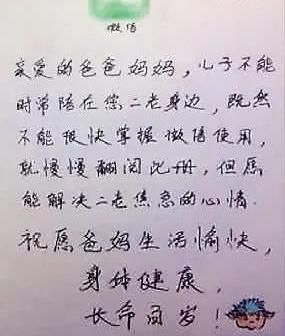 微信
亲爱的爸爸妈妈，儿子不能
时常陪在您二老身边，既然
不能很快掌握微信使用，
就慢慢翻阅此册，但愿
能解决二老焦急的心情.
祝愿爸妈生活愉快，
身体健康，
长命百岁！